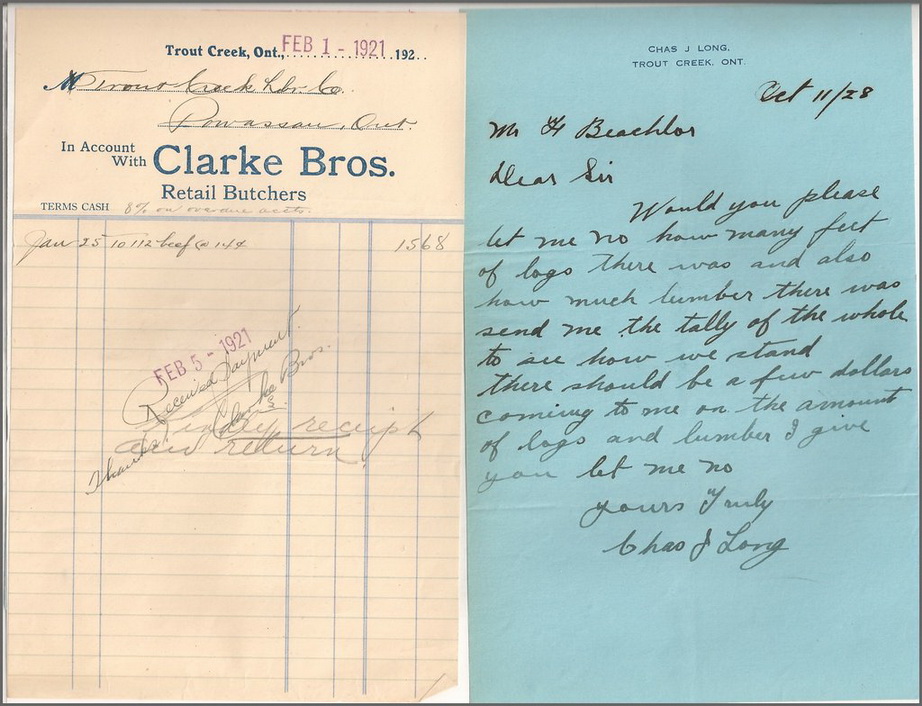 Trout Creek, Ont., FEB 1 - 1921 192..
M Trout Creek Lbr. Co.
Powassan, Ont.
In Account
With Clarke Bros.
Retail Butchers
TERMS CASH 8% on overdue accts.
Jan 25 10 112 beef @ 14¢ 15 68
FEB 5 - 1921
Received payment.
Clarke Bros.
Kindly receipt
and return.
Thanks
CHAS J LONG,
TROUT CREEK, ONT.
Oct 11/28
Mr H Beachlor
Dear Sir
Would you please
let me no how many feet
of logs there was and also
how much lumber there was
send me the tally of the whole
to see how we stand
there should be a few dollars
coming to me on the amount
of logs and lumber I give
you let me no
yours Truly
Chas J Long